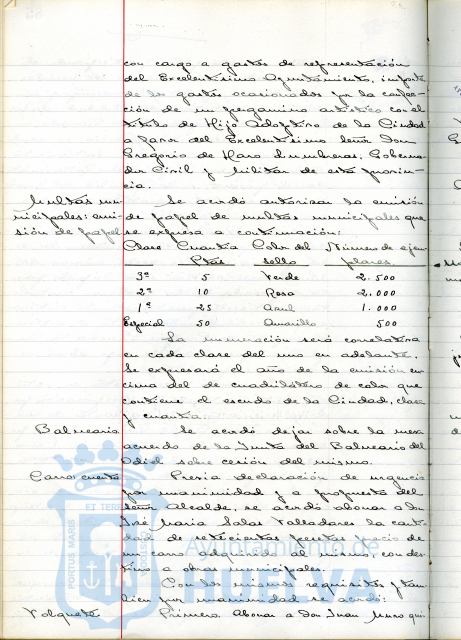 con cargo a gastos de representación
del Excelentísimo Ayuntamiento, importe
de los gastos ocasionados por la confec-
ción de un pergamino artístico con el
título de Hijo Adoptivo de la Ciudad
a favor del Excelentísimo Señor Don
Gregorio de Haro Lumbreras, Goberna-
dor Civil y Militar de esta provin-
cia.
Multas mu-
nicipales: emi-
sión de papel
Se acordó autorizar la emisión
de papel de multas municipales que
se expresa a continuación:
Clase Cuantía Color del Número de ejem-
Ptas sello plares
3ª 5 Verde 2.500
2ª 10 Rosa 2.000
1ª 25 Azul 1.000
Especial 50 Amarillo 500
La numeración será correlativa
en cada clase del uno en adelante.
Se expresará el año de la emisión en-
cima del de cuadrilátero de color que
contiene el escudo de la Ciudad, clase
y cuantía.
Balneario
Se acordó dejar sobre la mesa
acuerdo de la Junta del Balneario del
Odiel sobre cesión del mismo.
Carro: cuenta
Previa declaración de urgencia
por unanimidad y a propuesta del
Señor Alcalde, se acordó abonar a Don
José María Salas Valladares la canti-
dad de setecientas pesetas precio de
un carro adquirido al mismo, con des-
tino a obras municipales.
Con los mismos requisitos y tam-
bien por unanimidad se acordó:
Volquete
Primero. Abonar a Don Juan Muro qui-
PORTUS MARIS
ET TERRE
Ayuntamiento de
HUELVA